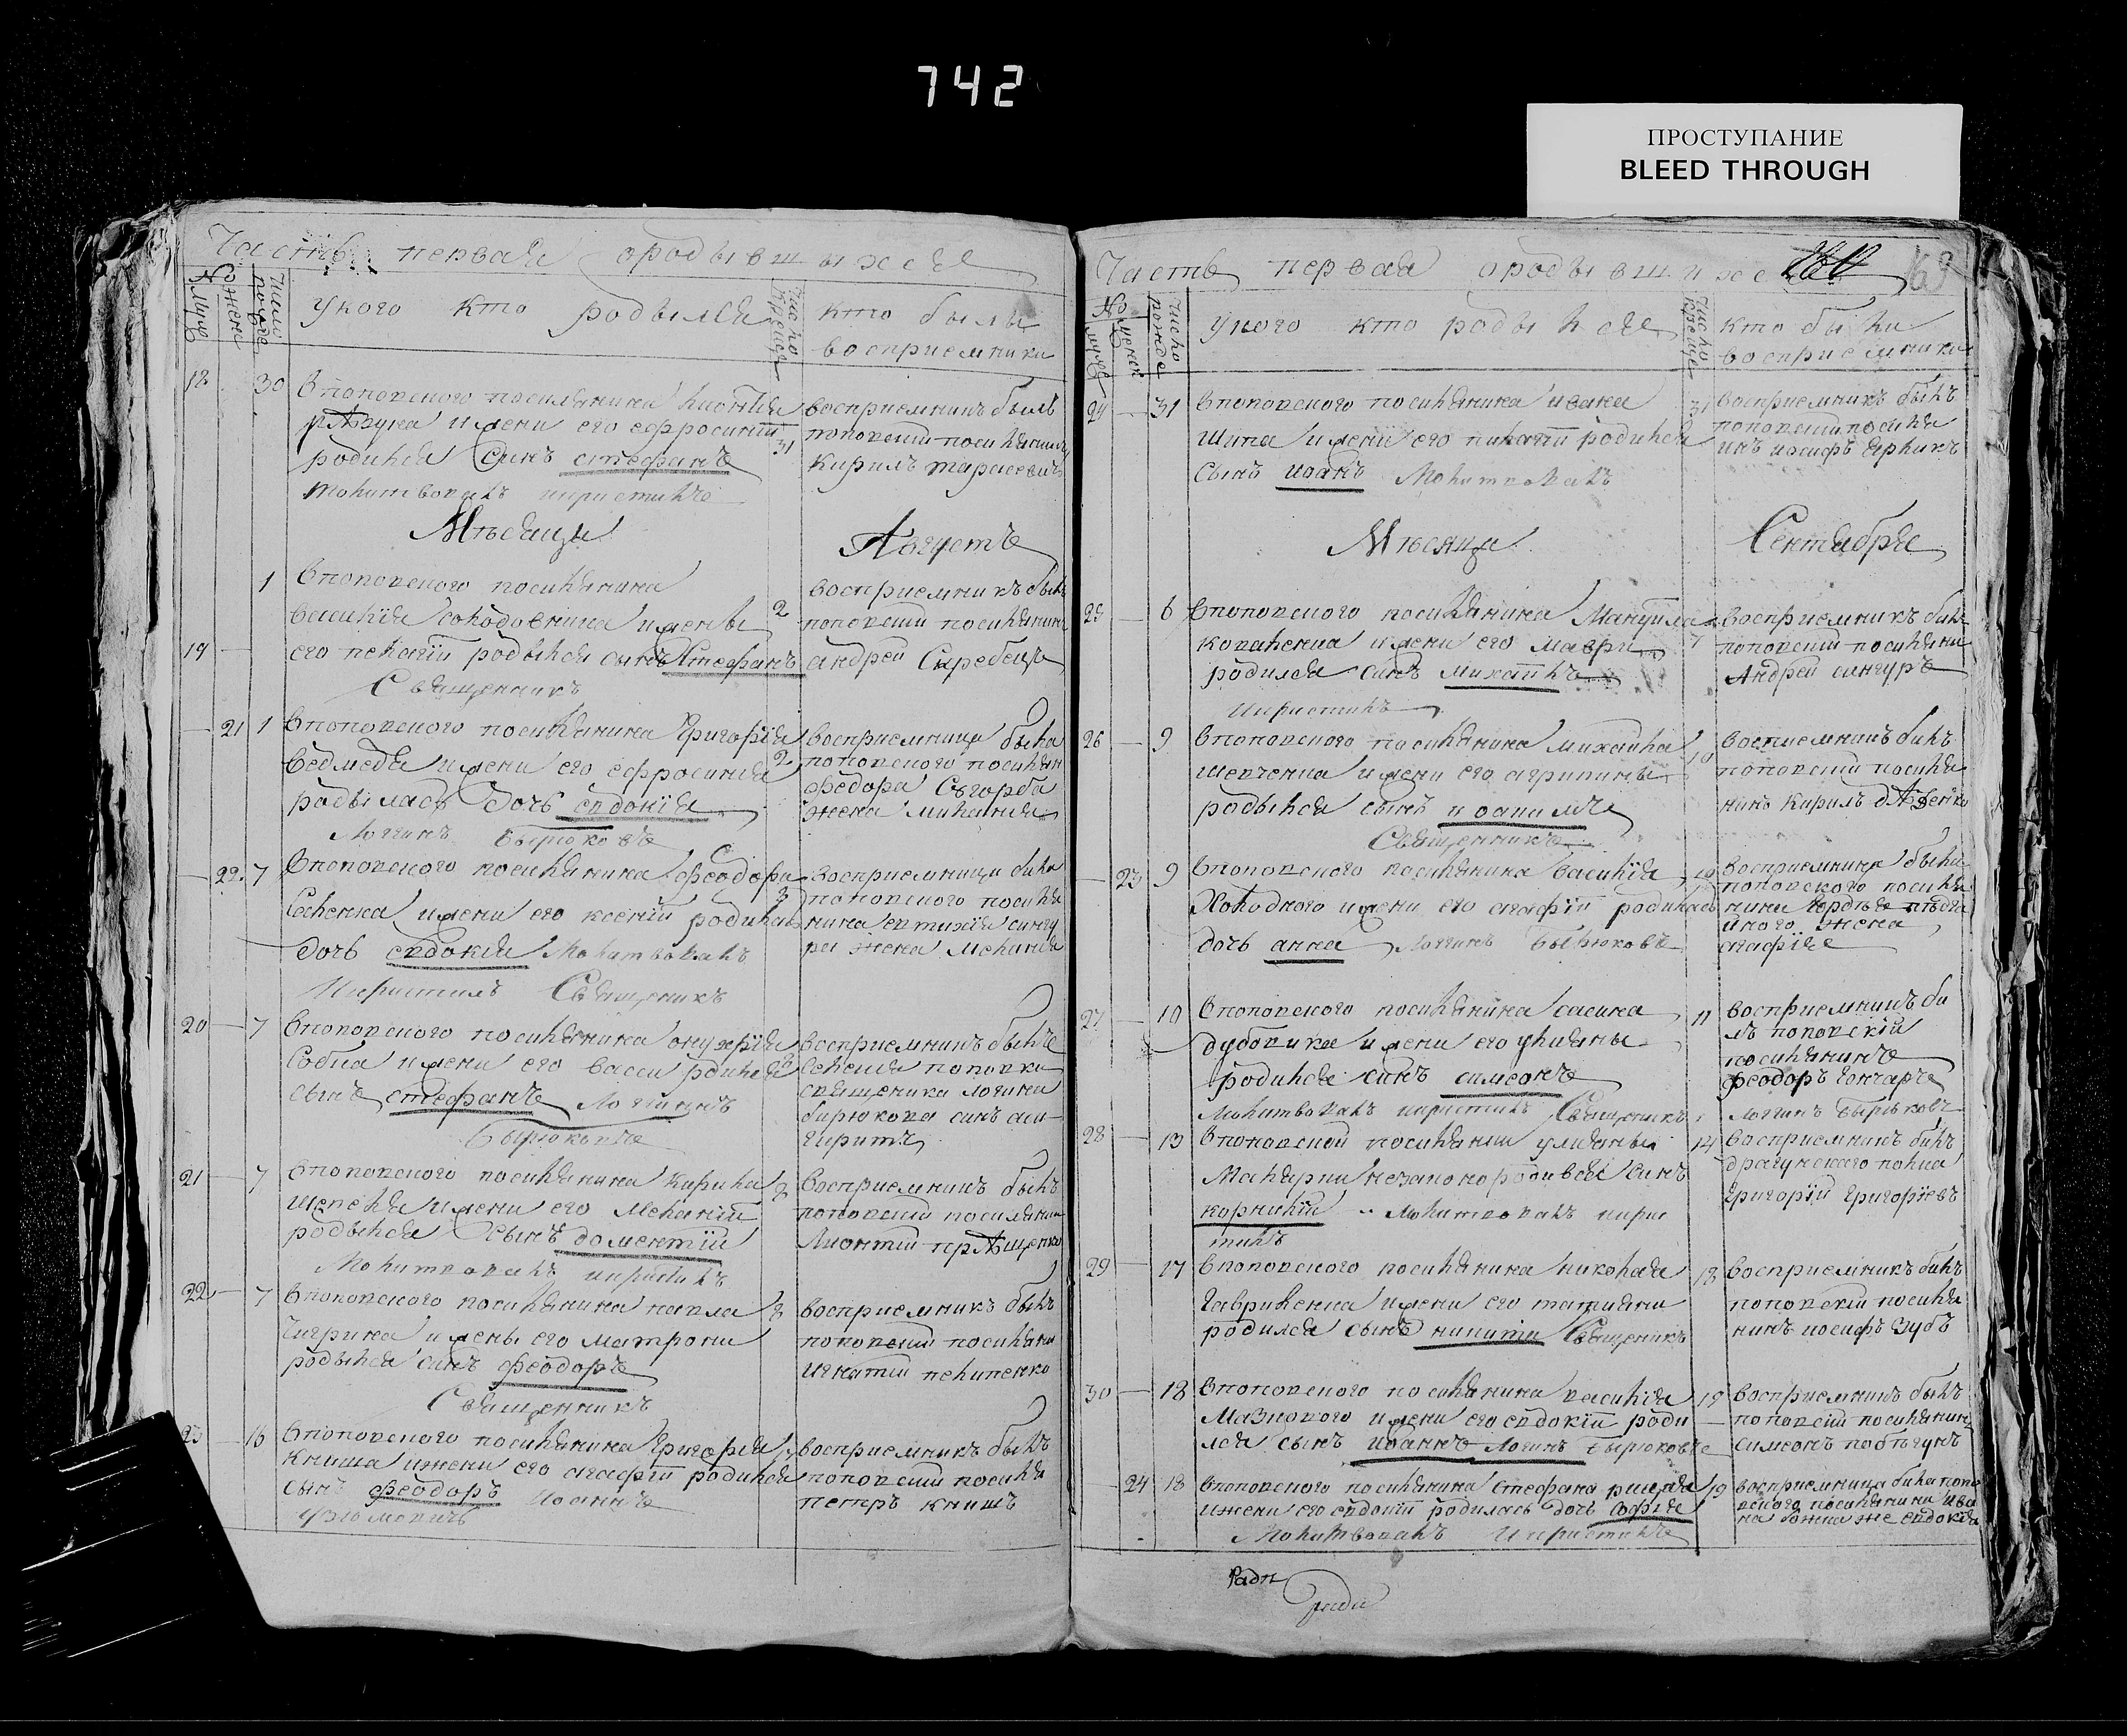 742
ПРОСТУПАНИЕ
BLEED THROUGH
Часть первая ородывшыхся
№
муж
жене
число рожде
укого кто родылся
число креще
кто былы
восприемники
18 30 Впоповского посиляника
и жени его ефросинїи
родился Синъ стефанъ
молитвовалъ икристилъ
31
восприемникъ былъ
поповский посилянинъ
Кирилъ тарасевичъ
Мѣсяца Августъ
19 1 Впоповского посиляника
василїя соколовскиа и жены
его пелагїи родылся сынъ Стефанъ
Священникъ
2
восприемникъ былъ
поповский посилянинъ
андрей Скребецъ
21 1 Впоповского посиляника Григорїя
Ведмедя и жени его ефросинїя
родылась дочь евдокїя
Логгинъ Бырюковъ
2
восприемница была
поповского посилян
федора Сгорба
жена миланїя
22 7 Впоповского посиляника феодора
и жени его ксенїи родилась
дочь евдокїя Молитвовалъ
Икристилъ Священикъ
8
восприемница била
поповского посиля
нина евтихїя сингу
ра жена меланїя
20 7 Впоповского посиляника онуфрїя
Собка и жени его васси родился
сынъ стефанъ Логгинъ
Бырюковъ
8
восприемникъ былъ
селенїя поповки
священика логина
бирюкова синъ
21 7 Впоповского посиляника Кирила
шепеля и жени его меланїи
родылся Сынъ доментїй
Молитвовалъ икристилъ
8
восприемникъ былъ
поповский посилянин
Лионтий
22 7 Впоповского посиляника павла
Чигрина и жены его матрони
родылся синъ феодоръ
Священникъ
8
восприемникъ былъ
поповский посиляни
игнатий пелипенко
23 16 Впоповского посиляника Григорїя
Книша ижени его агафїи родился
сынъ феодоръ Иоаннъ
восприемникъ былъ
поповский посиля
петръ книшъ
Часть первая ородывшихс 169
№
муже
женск
число рожде
укого кто родылся
число креще
кто были
восприемники
24 31 Впоповского посиляника ивана
Шила и жени его пилагїи родился
Сынъ иоанъ Молитвовалъ
31
Восприемникъ былъ
поповский посиля
инъ иосифъ
Мѣсяца Сентября
25 6 Впоповского посиляника Мануила
коваленка и жени его маври
родился синъ михаилъ
Икристилъ
7
восприемникъ билъ
поповский посиляни
Андрей сингуръ
26 9 Впоповского посиляника михаила
шевченка и жени его агрипины
родылся сынъ иоанилъ
Священникъ
10
воспиемникъ билъ
поповский посиля
нинъ Кирилъ
23 9 Впоповского посиляника василїя
Холодного и жени его агафїи родилась
дочь анна Логгинъ Бырюковъ
10
восприемница была
поповского посиля
нина
жена
агафїя
27 10 Впоповского посиляника
дубовика и жени его улияны
родился синъ симеонъ
молитвовалъ икристилъ Священикъ
11
восприемникъ би
лъ поповскїй
посилянинъ
феодоръ Гончаръ
Логинъ Бырюковъ
28 13 Впоповской посилянки улияны
незаконородився синъ
корнилїй Молитвовалъ икрис
тилъ
14
Восприемникъ билъ
драгунского полка
Григорїй Григорїевъ
29 17 Впоповского посиляника николая
Гавриленка и жени его татияни
родился сынъ никита Священикъ
18
Восприемникъ билъ
поповский посиля
нинъ иосифъ Зубъ
30 18 Впоповского посиляника василїя
Мазнового и жени его евдокїи роди
лся сынъ иоаннъ Логинъ Бырюковъ
19
Восприемникъ былъ
поповсий посилянин
симеонъ побѣгунъ
24 18 Впоповского посиляника Стефана
ижени его евдокїи родилась дочь софїя
Молитвовалъ Икристилъ
19
восприемница била попо
вского посиляника ива
на же евдокїя